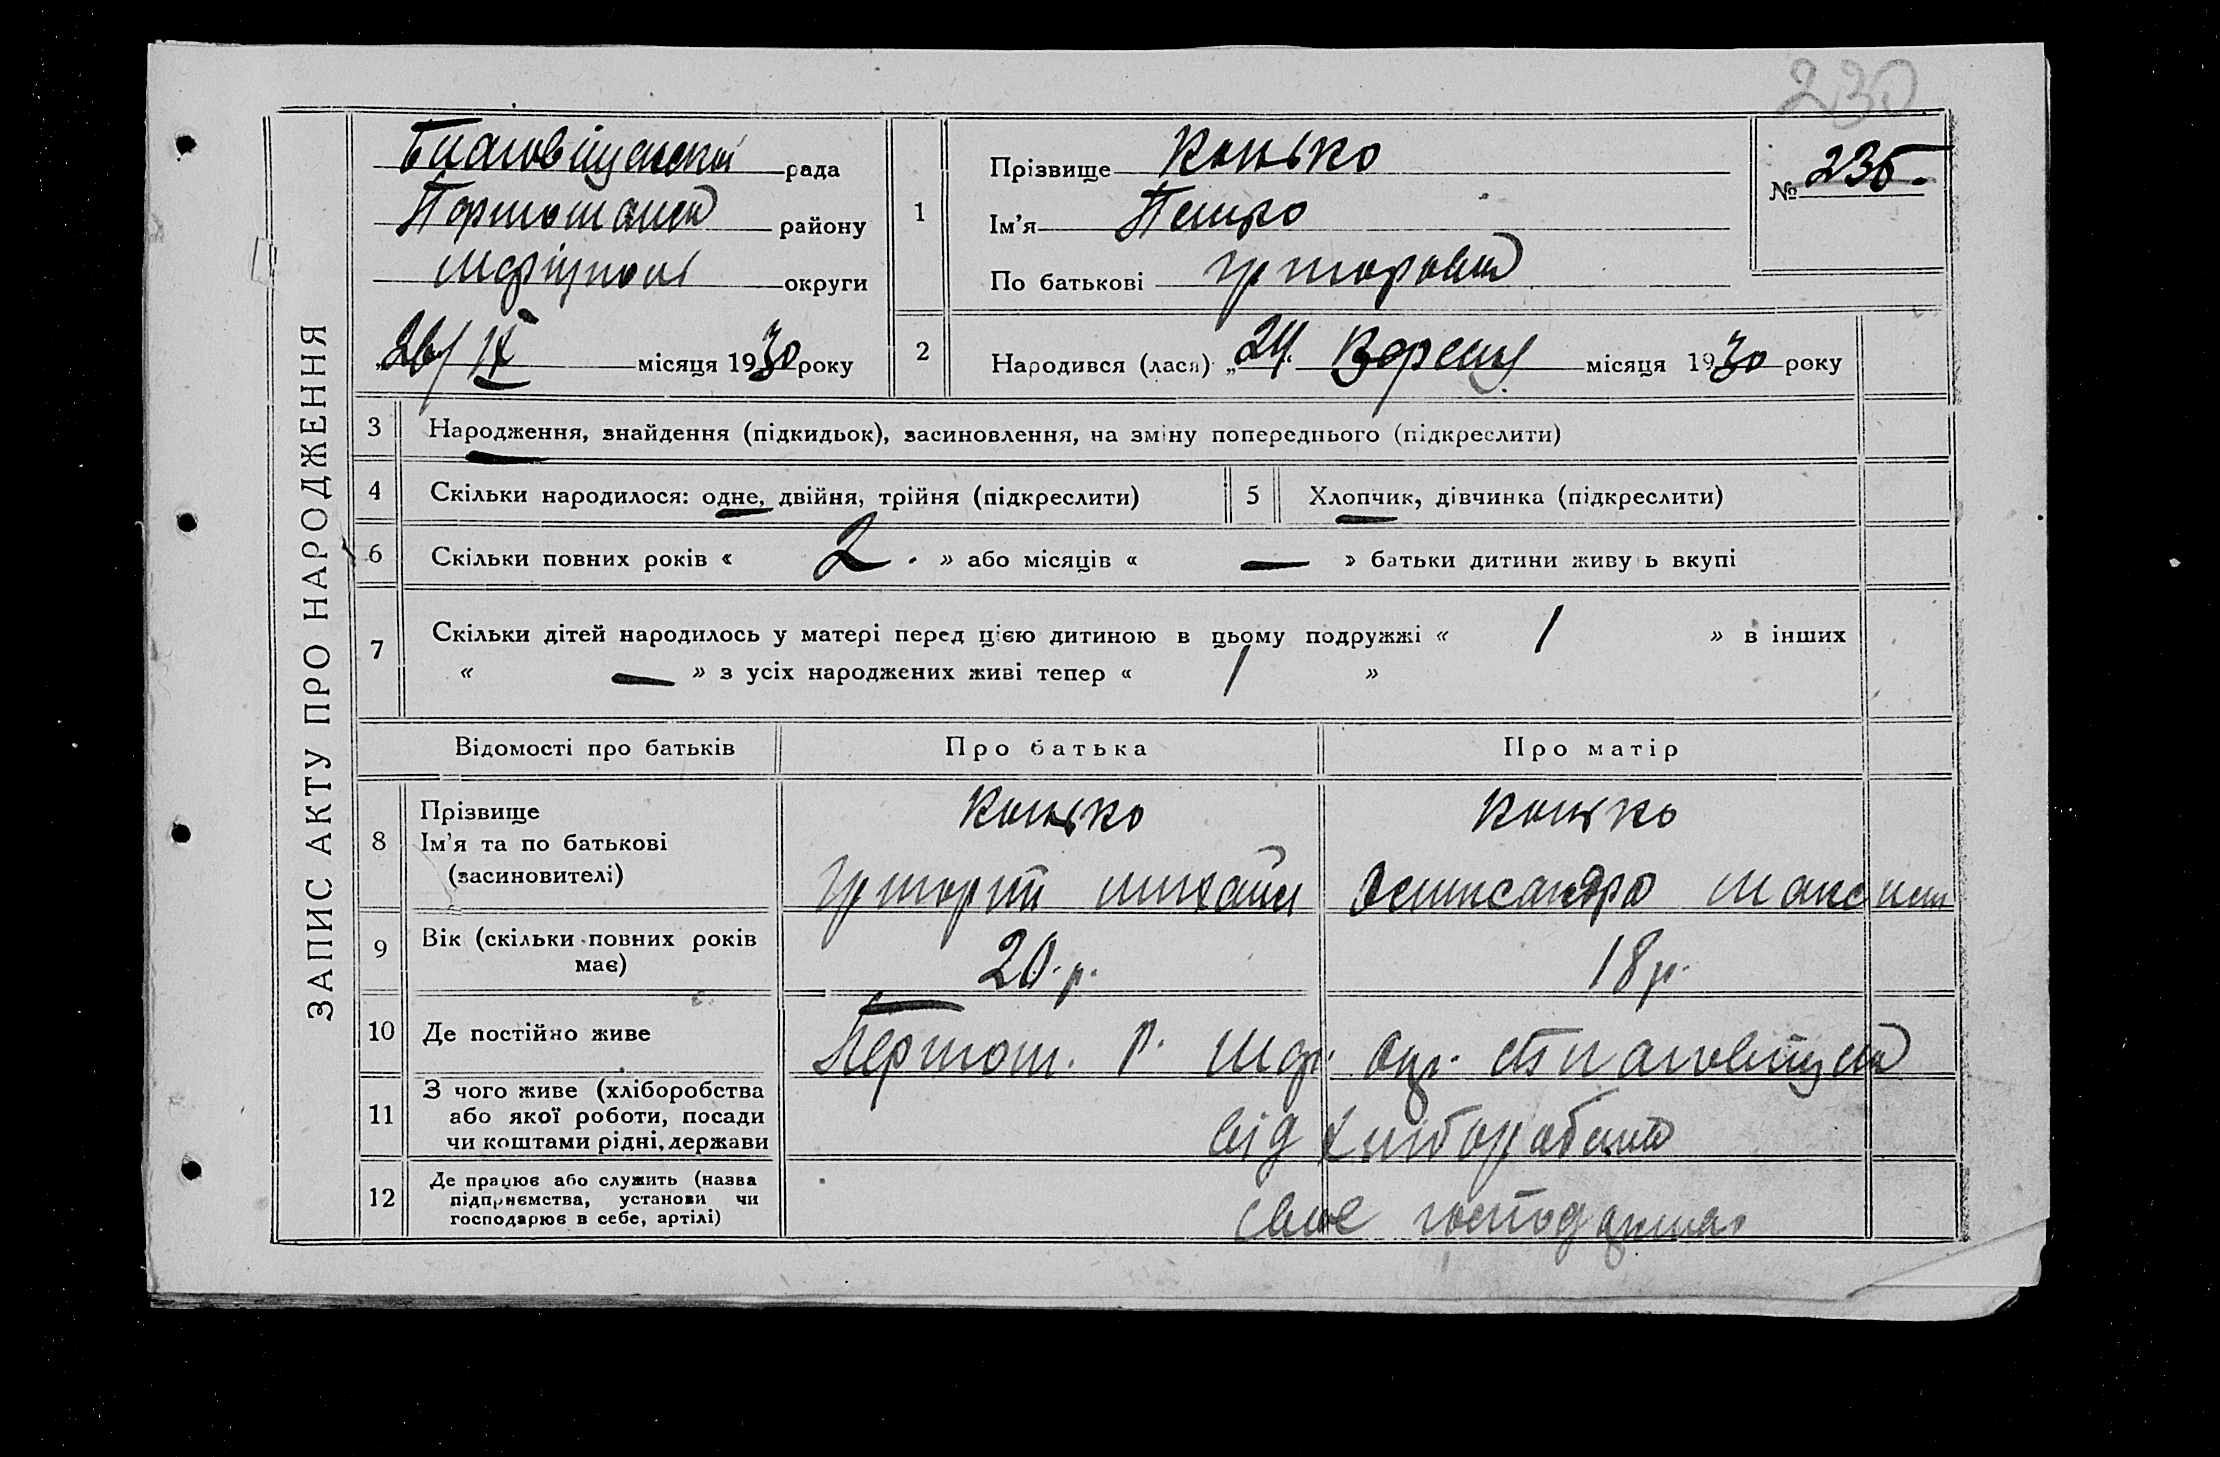 230
Благовіщенської рада
району
округи
26/IX місяця 1930 року
ЗАПИС АКТУ ПРО НАРОДЖЕННЯ
1
Прізвище Конько
Ім'я Петро
По батькові Григорович
№ 235.
2 Народився (лася) „24" Вересня місяця 1930 року
3 Народження, знайдення (підкидьок), засиновлення, на зміну попереднього (підкреслити)
4 Скільки народилося: одне, двійня, трійня (підкреслити)
5 Хлопчик, дівчинка (підкреслити)
6 Скільки повних років « 2. » або місяців « — » батьки дитини живуть вкупі
7 Скільки дітей народилось у матері перед цією дитиною в цьому подружжі « 1 » в інших
« — » з усіх народжених живі тепер « 1 »
Відомості про батьків Про батька Про матір
8 Прізвище
Ім'я та по батькові
(засиновителі)
Конько Конько
Григорій Михайл Олександра Максим
9 Вік (скільки повних років
має)
20.р. 18р.
10 Де постійно живе
р. окр.
11 З чого живе (хліборобства
або якої роботи, посади
чи коштами рідні, держави
від хліборобства
12 Де працює або служить (назва
підприємства, установи чи
господарює в себе, артілі)
своє